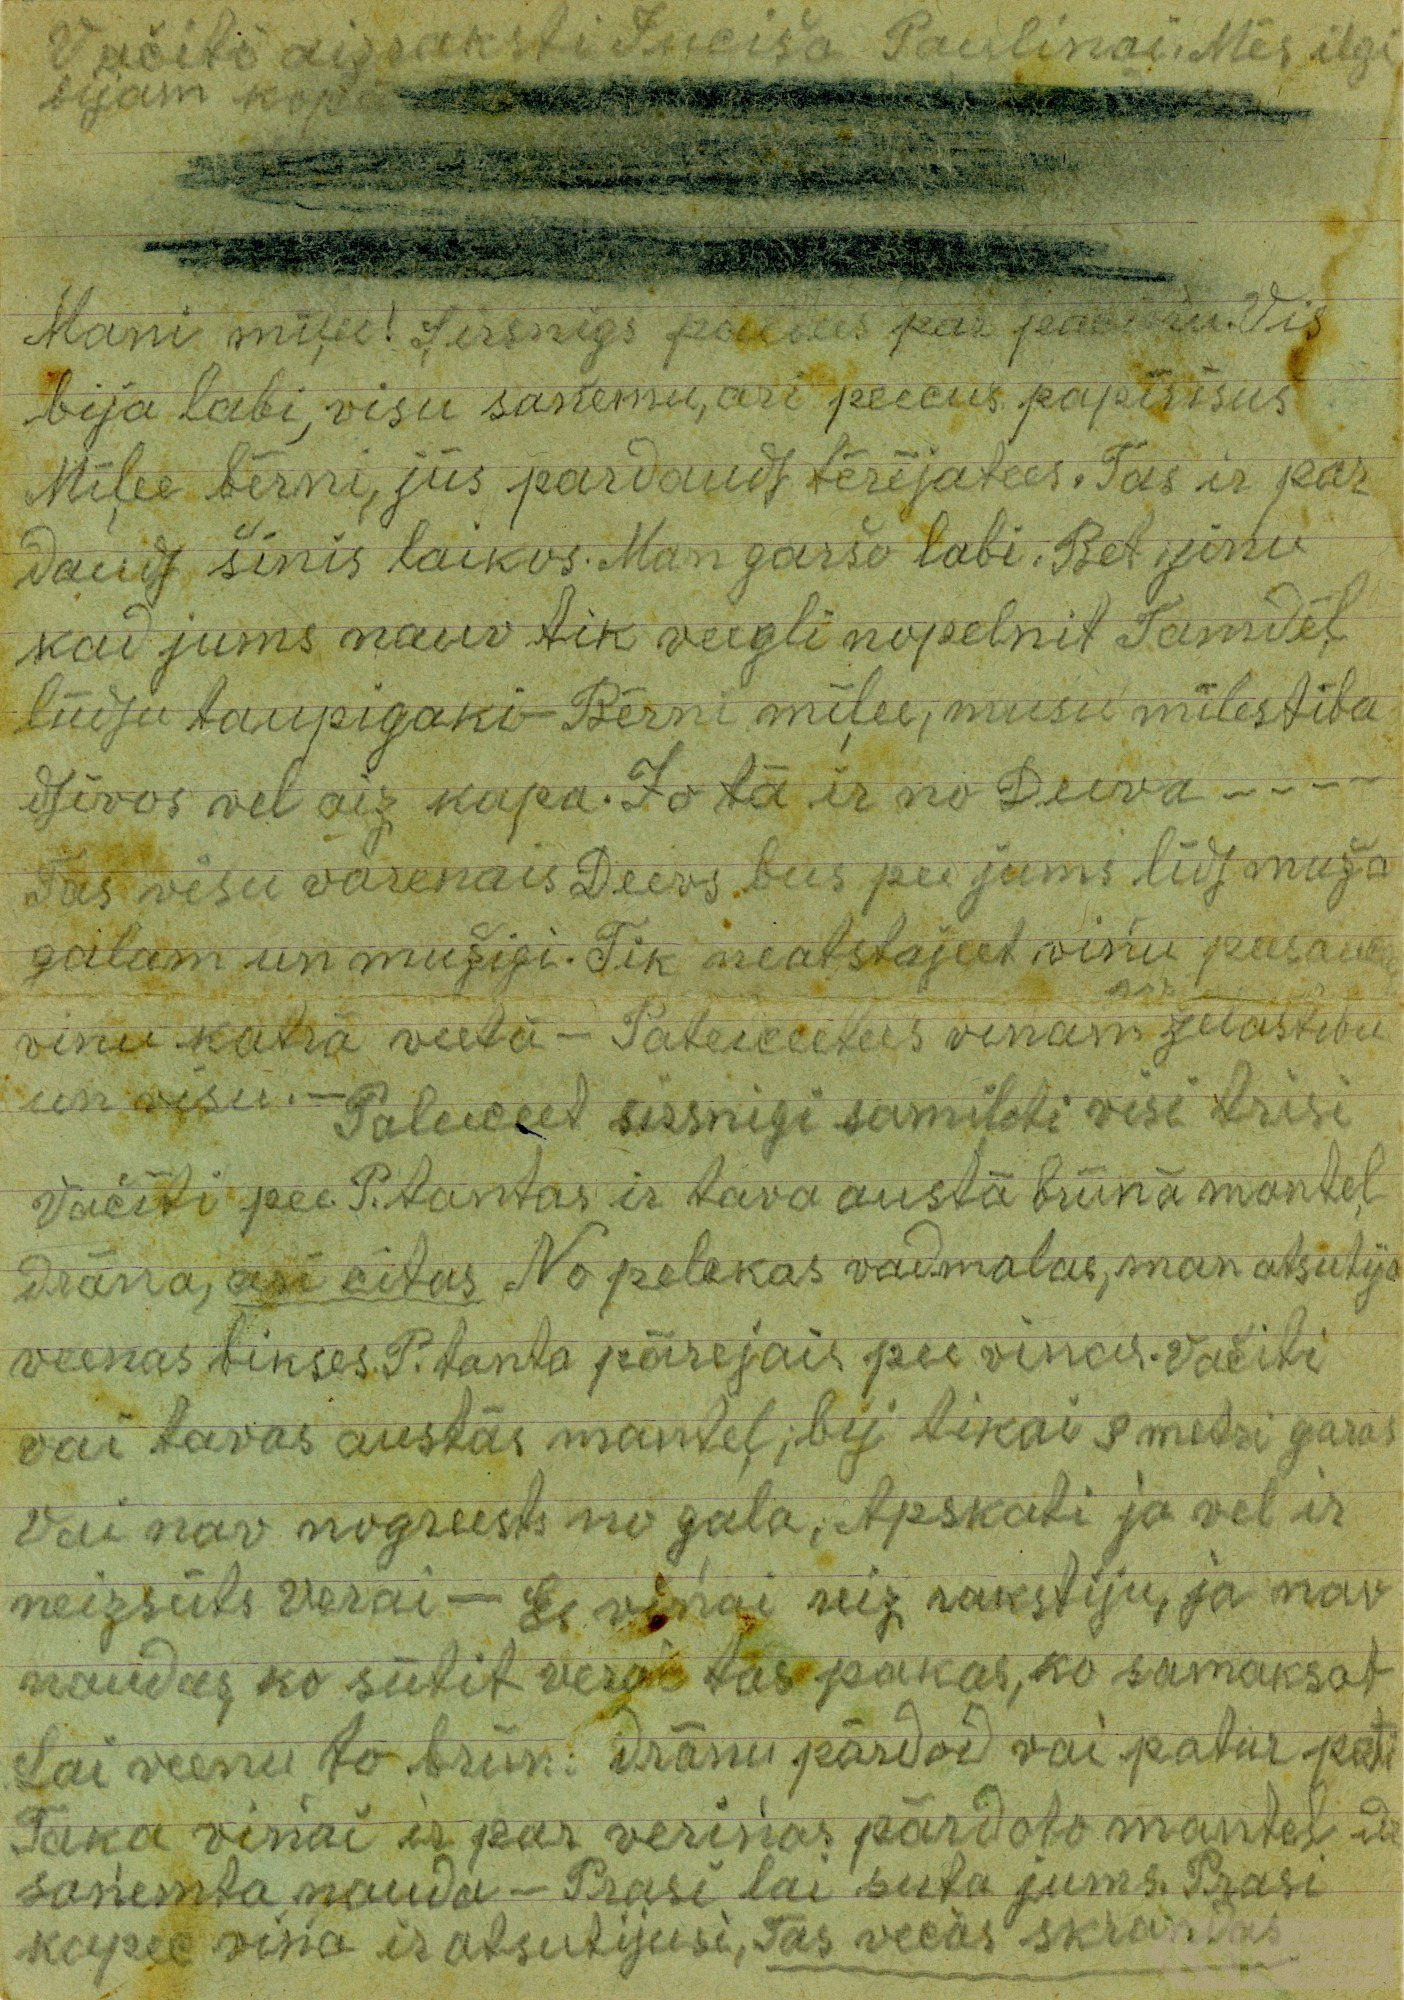 Vačiti aizraksti Inciša Paulinai. Mēs ilgi
bijam kopā
Mani miļee! Sirsnigs paldees par Vis
bija labi, visu saņemu, ari peecus papirisus
Miļee bērni, jūs pardaudz tērējatees. Tas ir par
daudz šinīs laikos. Man garšo labi. Bet zinu
kad jums nauv tik veegli nopelnit Tamdēļ
lūdzu taupigaki – Bērni miļee, musu milestiba
dzivos vel aiz kapa. Jo tā ir no Deeva – – – –
Tas visu varenais Deevs bus pee jums lidz muža
galam un mužigi. Tik neatstājeet viņu
viņu katrā veetā – Pateiceetees viņam par želastibu
un visu. – Paleeceet sirsnigi samiļoti visi trisi
Vačiti pee P. tantas ir tava austā brūnā mantel
drāna, ari citas No pelekas vadmalas, man atsutija
veenas bikses P. tanta pārejais pee viņas. Vačiti
vai tavas austās manteļ, bij tikai 8 metri garas
Vai nav nogreests no gala, Apskati ja vel ir
neizsūts Verai – Es viņai reiz rakstiju, ja nav
naudas, ko sūtit verai tās pakas, ko samaksat
Lai veenu to brūn: drānu pārdod vai patur pati
Taka viņai ir par veriņas pārdoto mantel
saņemta nauda – Prasi lai suta jums. Prasi
kapee viņa ir atsutijusi, Tas vecās skrandas